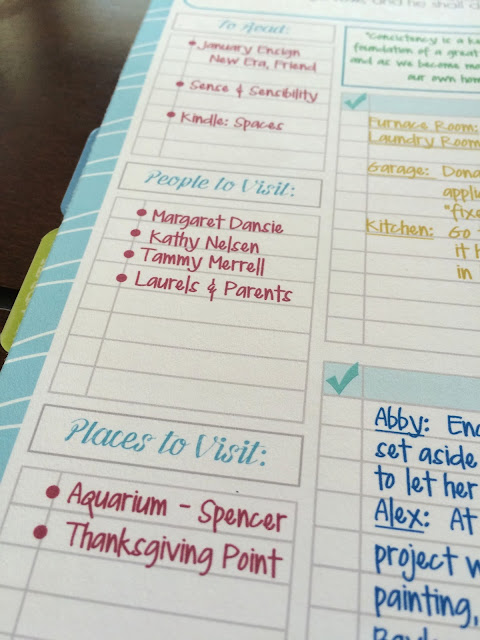 and he shall
To Read:
• January Ensign
New Era, Friend
• Sense & Sensibility
• Kindle: Spaces
People to Visit:
• Margaret Dansie
• Kathy Nelsen
• Tammy Merrell
• Laurels & Parents
Places to Visit:
• Aquarium - Spencer
• Thanksgiving Point
"Consistency is a
foundation of a great
and as we become
our own
Furnace Room:
Laundry Room
Garage:
Kitchen: Go
it
in
Abby:
set aside
to let her
Alex: At
project
painting,